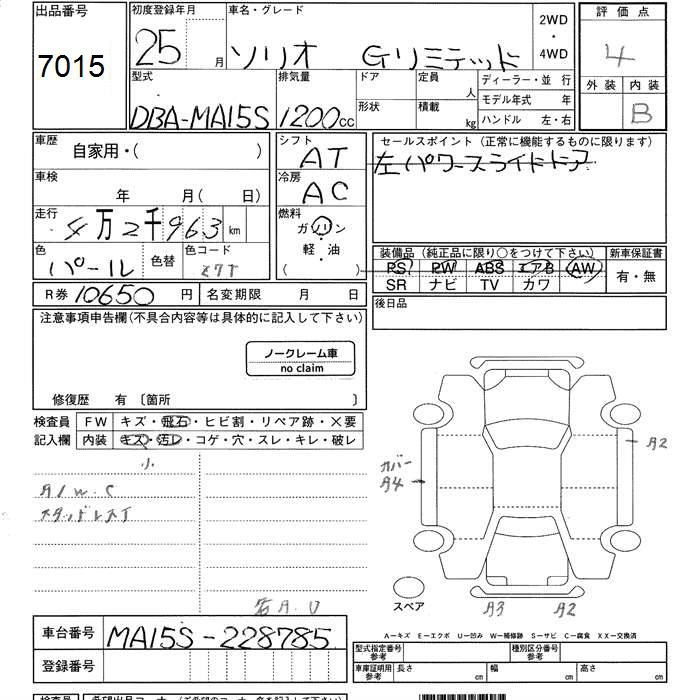 出品番号 7015
初度登録年月 25 月
車名・グレード ソリオ Gリミテッド
2WD・4WD
評価点 4
外装 内装 B
型式 DBA-MA15S
排気量 1200cc
ドア 形状
定員 人
積載 kg
ディーラー・並行
モデル年式 年
ハンドル 左・右
車歴 自家用・( )
シフト AT
セールスポイント (正常に機能するものに限ります)
左パワースライドドア
車検 年 月( 日)
冷房 AC
走行 4万2千963 km
燃料 ガソリン・軽・油 ( )
色 パール 色替 色コード Z7T
装備品 (純正品に限り○をつけて下さい)
新車保証書 有・無
PS PW ABS エアB AW
SR ナビ TV カワ
R券 10650 円 名変期限 月 日
後日品
注意事項申告欄(不具合内容等は具体的に記入して下さい)
ノークレーム車
no claim
修復歴 有 〔箇所 〕
検査員記入欄
FW キズ・飛石・ヒビ割・リペア跡・×要
内装 キズ・汚レ・コゲ・穴・スレ・キレ・破レ
小
A/W.C
スタッドレスT
右A.U
カバー
A4
A2
スペア
A3 A2
車台番号 MA15S-228785
登録番号
A-キズ E-エクボ U-凹み W-補修跡 S-サビ C-腐食 XX-交換済
型式指定番号 参考
種別区分番号 参考
車庫証明用 参考 長さ cm 幅 cm 高さ cm